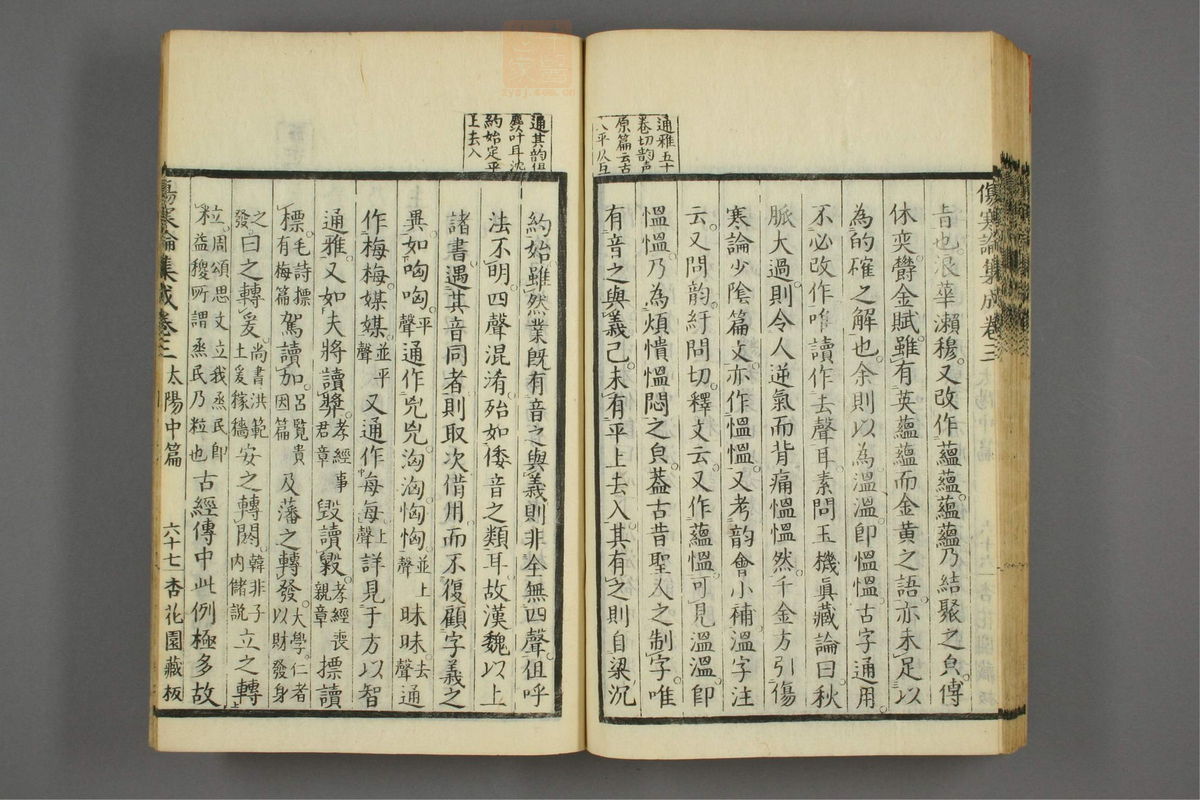 傷寒論集成卷三
通雅五十
卷切韵声
原篇云古
八平仄互
通其韵俱
可叶耳沈
約始定平
上去入
音也浪華瀨穆又改作蘊蘊蘊蘊乃結聚之皃傅
休奕欝金賦雖有英蘊蘊而金黄之語亦未足以
為的確之解也余則以為溫溫即愠愠古字通用
不必改作唯讀作去聲耳素問玉機眞藏論曰秋
脈大過則令人逆氣而背痛愠愠然千金方引傷
寒論少陰篇文亦作愠愠又考韵會小補溫字注
云又問韵紆問切釋文云又作蘊愠可見溫溫即
愠愠乃為煩憒愠悶之皃葢古昔聖人之制字唯
有音之與義已未有平上去入其有之則自梁沉
約始雖然業既有音之與義則非全無四聲但呼
法不明四聲混淆殆如倭音之類耳故漢魏以上
諸書遇其音同者則取次借用而不復顧字義之
異如呴呴平聲通作兇兇洶洶恟恟並上聲昧昧去聲通
作梅梅媒媒並平聲又通作每每上聲詳見于方以智
通雅又如夫將讀奬孝經事君章毀讀毀孝經喪親章摽讀
標毛詩摽有梅篇駕讀加呂覽貴因篇及藩之轉發大學仁者以財發身
發之曰之轉爰尚書洪範土爰稼穡安之轉閼韓非子內儲説立之轉
粒周頌思文立我烝民即益稷所謂烝民乃粒也古經傳中此例極多故
傷寒論集成卷三 太陽中篇 六十七 杏花園藏板